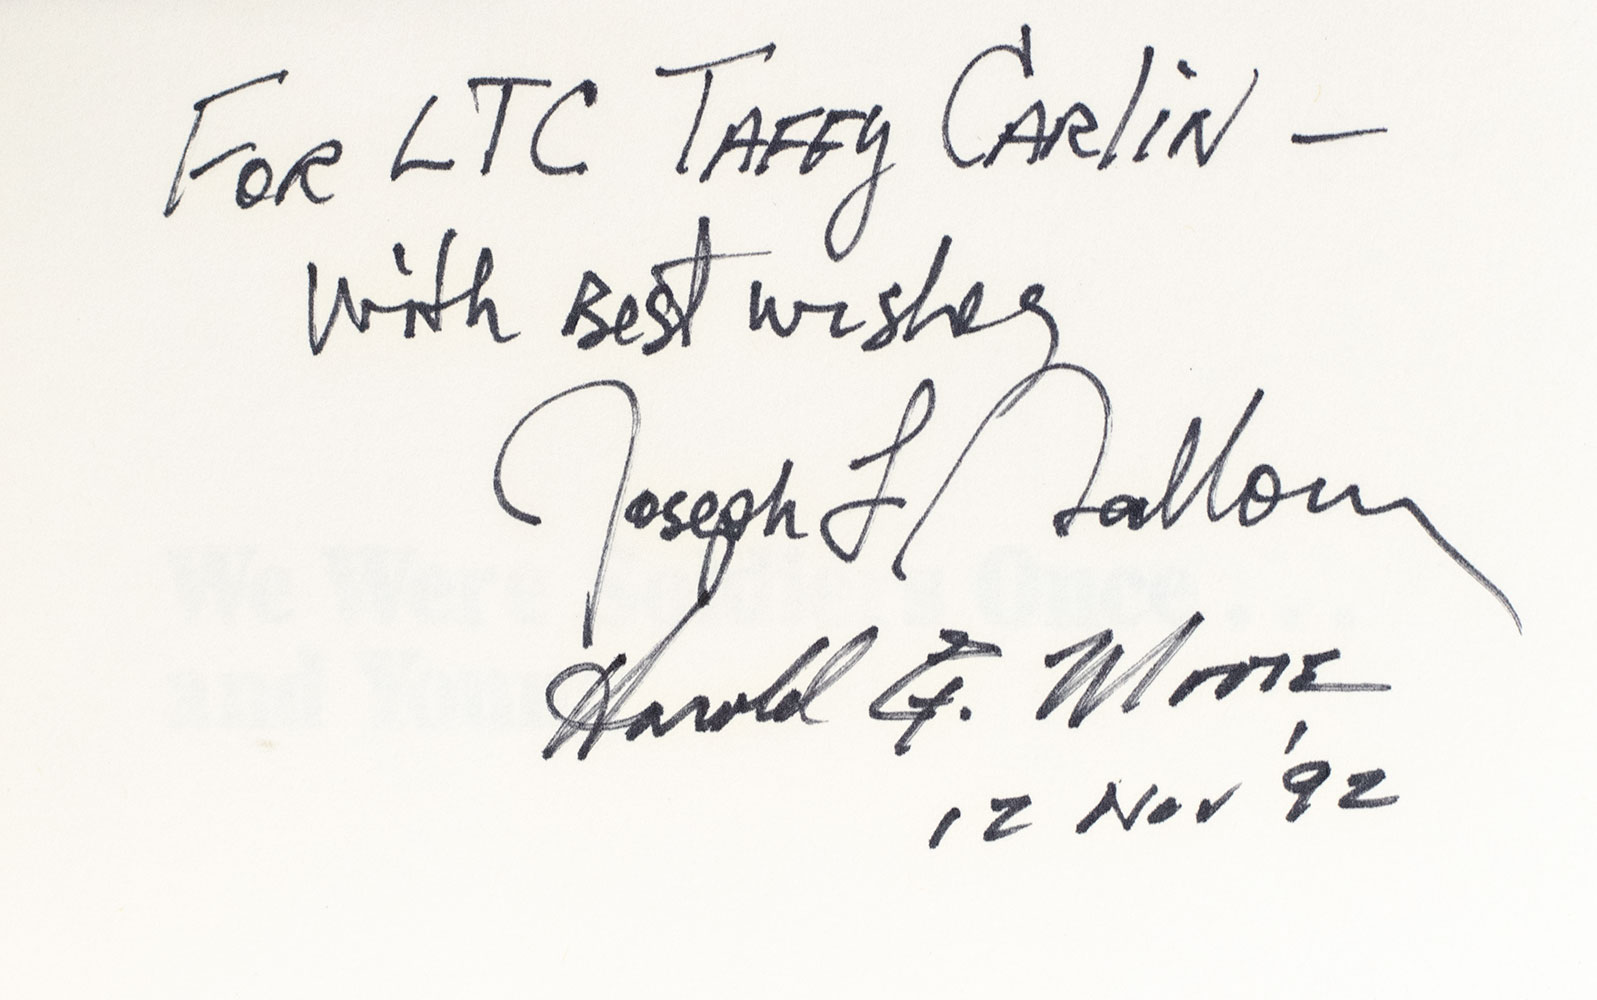 For LTC Taffy Carlin —
With Best wishes
Joseph L Galloway
Harold G. Moore
12 Nov '92
We Were Soldiers Once . . .
and Young